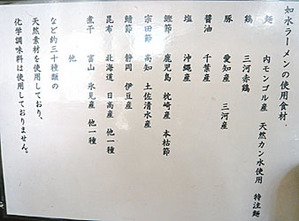 如水ラーメンの使用食材.
麺 内モンゴル産 天然カン水使用 特注麺
鶏 三河赤鶏
豚 愛知産 三河産
醤油 千葉産
塩 沖縄産
鰹節 鹿児島 枕崎産 本枯節
宗田節 高知 土佐清水産
鯖節 静岡 伊豆産
昆布 北海道 日高産 他一種
煮干 富山 氷見産 他一種
他
など約三十種類の
天然素材を使用しており、
化学調味料は使用しておりません。